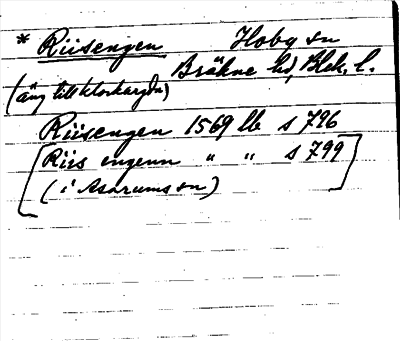 * Riisengen Hoby sn
Bräkne hd, Blek. l.
(äng till klockargn)
Riisengen 1569 lb s 796
[Riis engenn " " s 799]
(i Asarums sn)